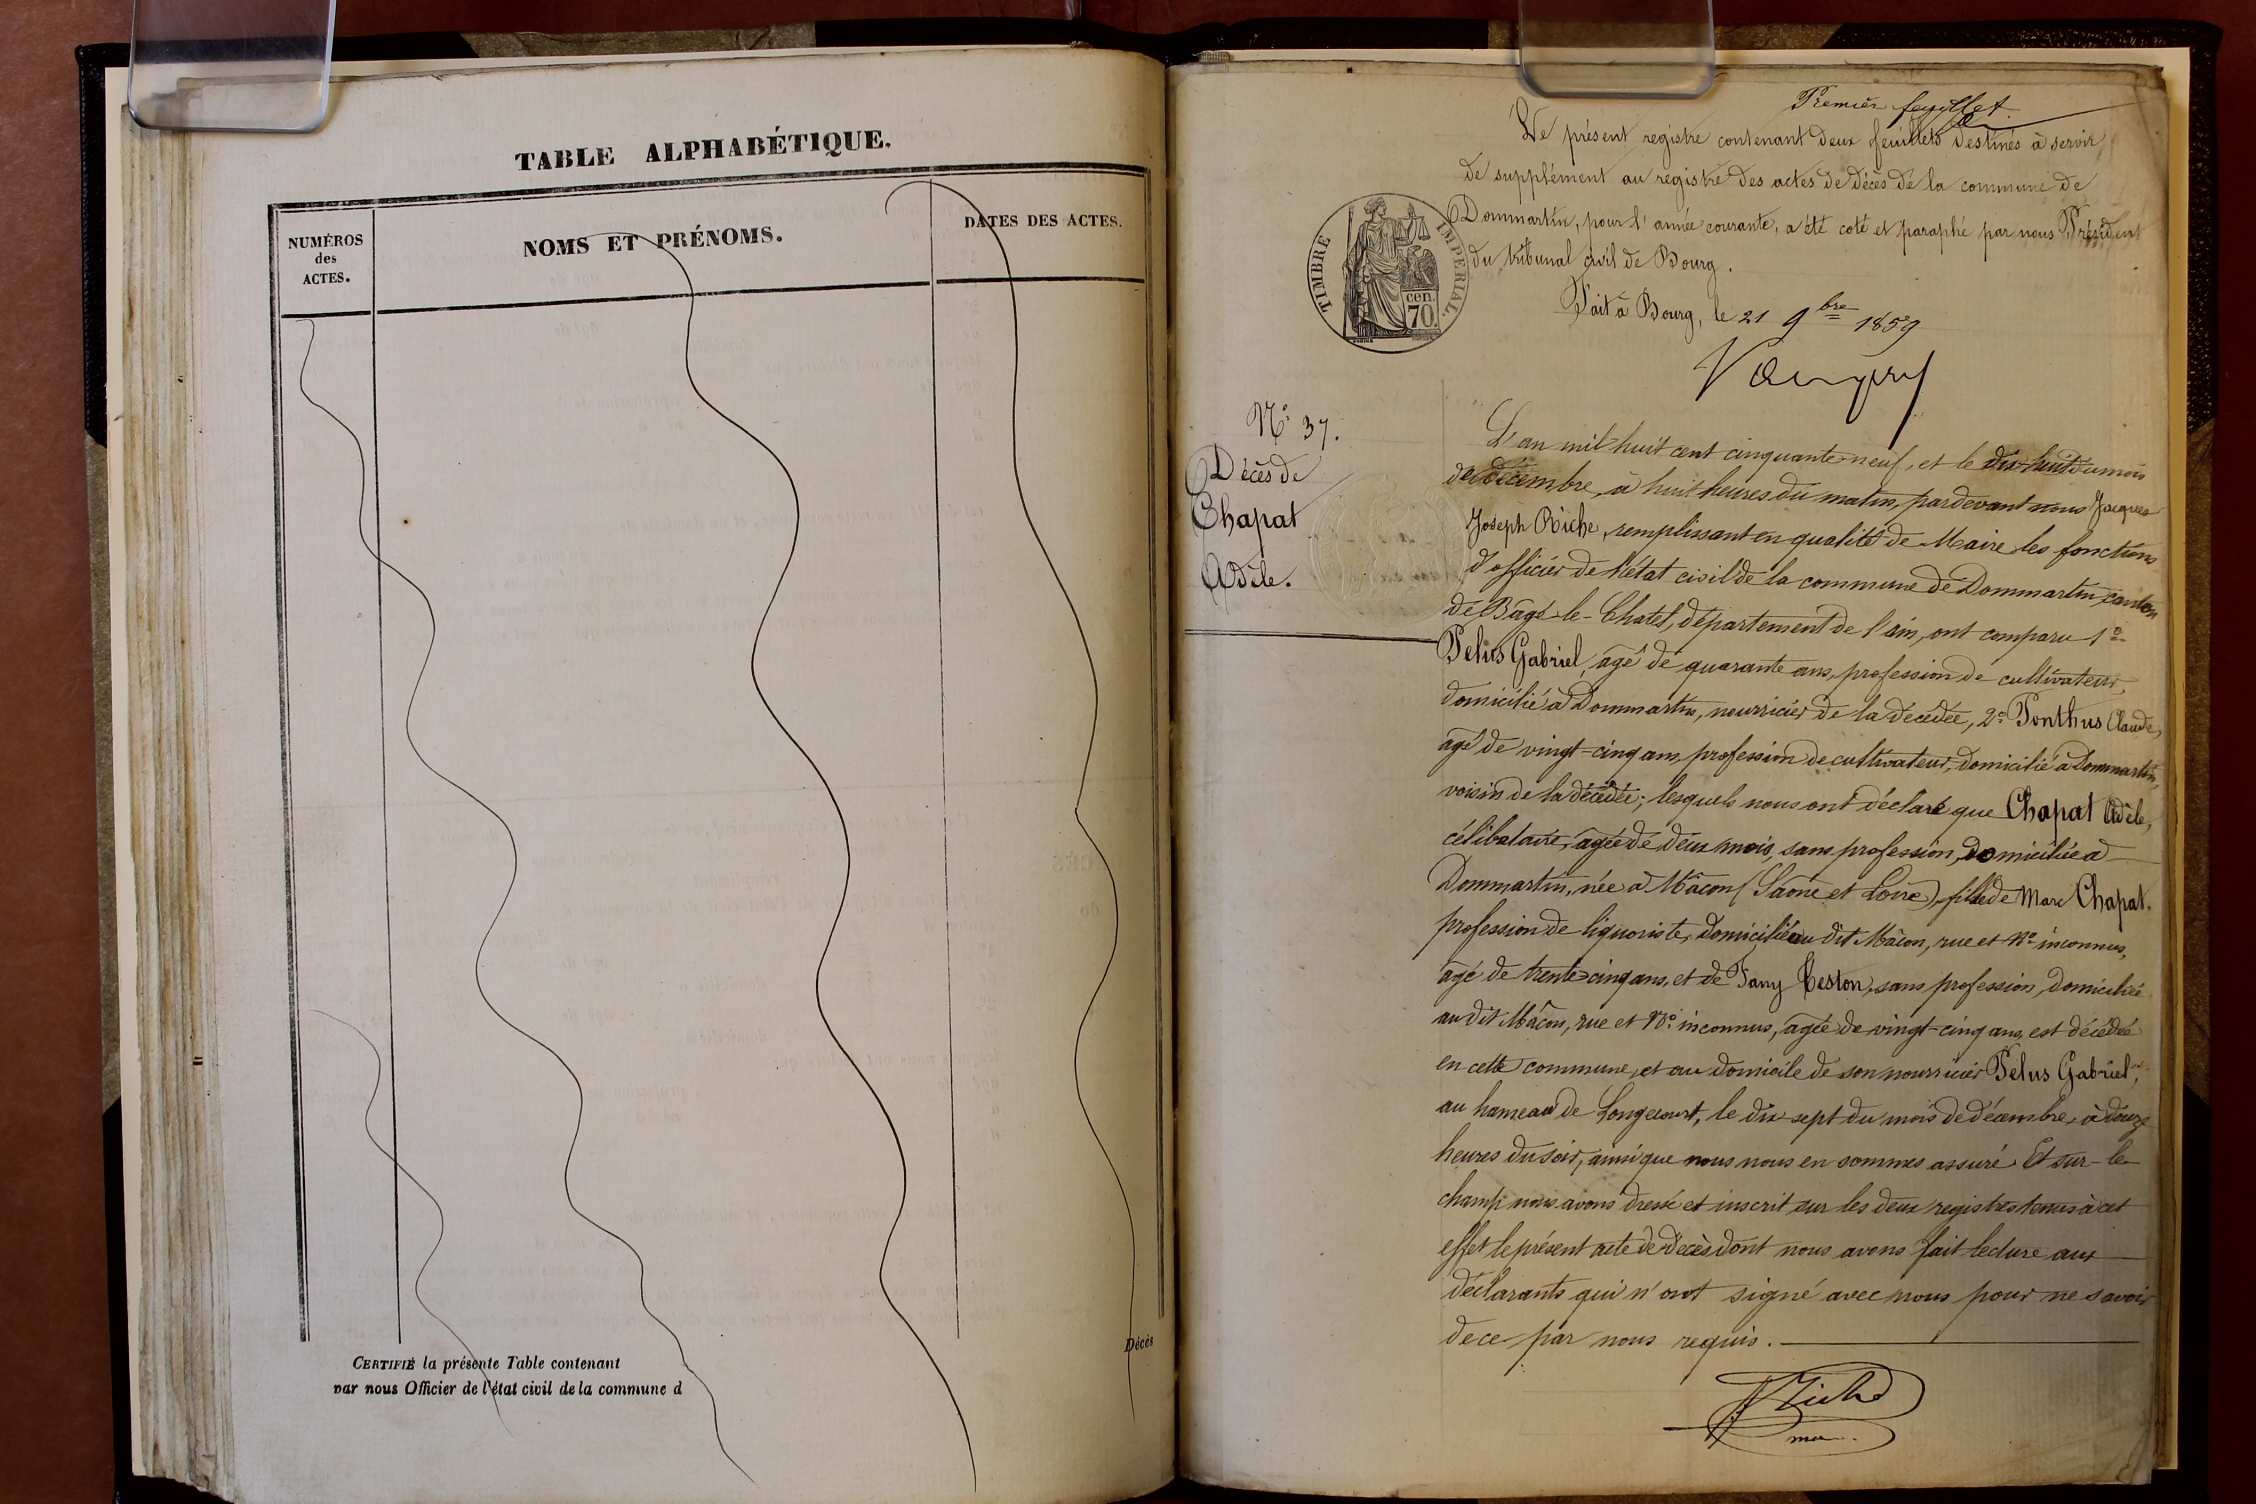 TABLE ALPHABÉTIQUE.
NUMÉROS
des
ACTES.
NOMS ET PRÉNOMS.
DATES DES ACTES.
Décès
CERTIFIÉ la présente Table contenant
par nous Officier de l'état civil de la commune d
Premier feuillet.
Le présent registre contenant deux feuillets destinés à servir
de supplément au registre des actes de décès de la commune de
Dommartin, pour l'année courante, a été coté et paraphé par nous Président
du tribunal civil de Bourg.
TIMBRE IMPÉRIAL.
cen.
70.
Fait à Bourg, le 21 9bre 1859
N° 37.
Décès de
Chapat
Adèle.
L'an mil huit cent cinquante-neuf, et le dix-huit du mois
de décembre, à huit heures du matin, pardevant nous Jacques
Joseph Riche, remplissant en qualité de Maire les fonctions
d'officier de l'état civil de la commune de Dommartin canton
de Bâgé-le-Chatel, département de l'ain, ont comparu 1°
Pelus Gabriel, âgé de quarante ans, profession de cultivateur,
domicilié à Dommartin, nourricier de la décédée, 2° Ponthus Claude,
âgé de vingt-cinq ans, profession de cultivateur, domicilié à Dommartin,
voisin de la décédée; lesquels nous ont déclaré que Chapat Adèle,
célibataire, âgée de deux mois, sans profession, domiciliée à
Dommartin, née à Mâcon (Saône et Loire), fille de Marc Chapat.
profession de liquoriste, domicilié au dit Mâcon, rue et N° inconnus,
âgé de trente-cinq ans, et de Fany Teston, sans profession, domiciliée
au dit Mâcon, rue et N° inconnus, âgée de vingt-cinq ans, est décédée
en cette commune, et au domicile de son nourricier Pelus Gabriel,
au hameau de Longecourt, le dix sept du mois de décembre, à douze
heures du soir, ainsi que nous nous en sommes assuré. Et sur-le
champ nous avons dressé et inscrit sur les deux registres tenus à cet
effet le présent acte de décès dont nous avons fait lecture aux
déclarants qui n'ont signé avec nous pour ne savoir
de ce par nous requis.
Riche